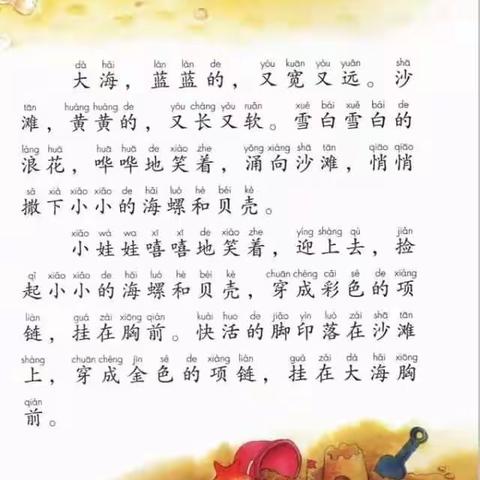 dà hǎi lán lán de yòu kuān yòu yuǎn shā
大海，蓝蓝的，又宽又远。沙
tān huáng huáng de yòu cháng yòu ruǎn xuě bái xuě bái de
滩，黄黄的，又长又软。雪白雪白的
làng huā huā huā de xiào zhe yǒng xiàng shā tān qiāo qiāo
浪花，哗哗地笑着，涌向沙滩，悄悄
sǎ xià xiǎo xiǎo de hǎi luó hé bèi ké
撒下小小的海螺和贝壳。
xiǎo wá wa xī xī de xiào zhe yíng shàng qù jiǎn
小娃娃嘻嘻地笑着，迎上去，捡
qǐ xiǎo xiǎo de hǎi luó hé bèi ké chuān chéng cǎi sè de xiàng
起小小的海螺和贝壳，穿成彩色的项
liàn guà zài xiōng qián kuài huo de jiǎo yìn luò zài shā tān
链，挂在胸前。快活的脚印落在沙滩
shàng chuān chéng jīn sè de xiàng liàn guà zài dà hǎi xiōng
上，穿成金色的项链，挂在大海胸
qián
前。